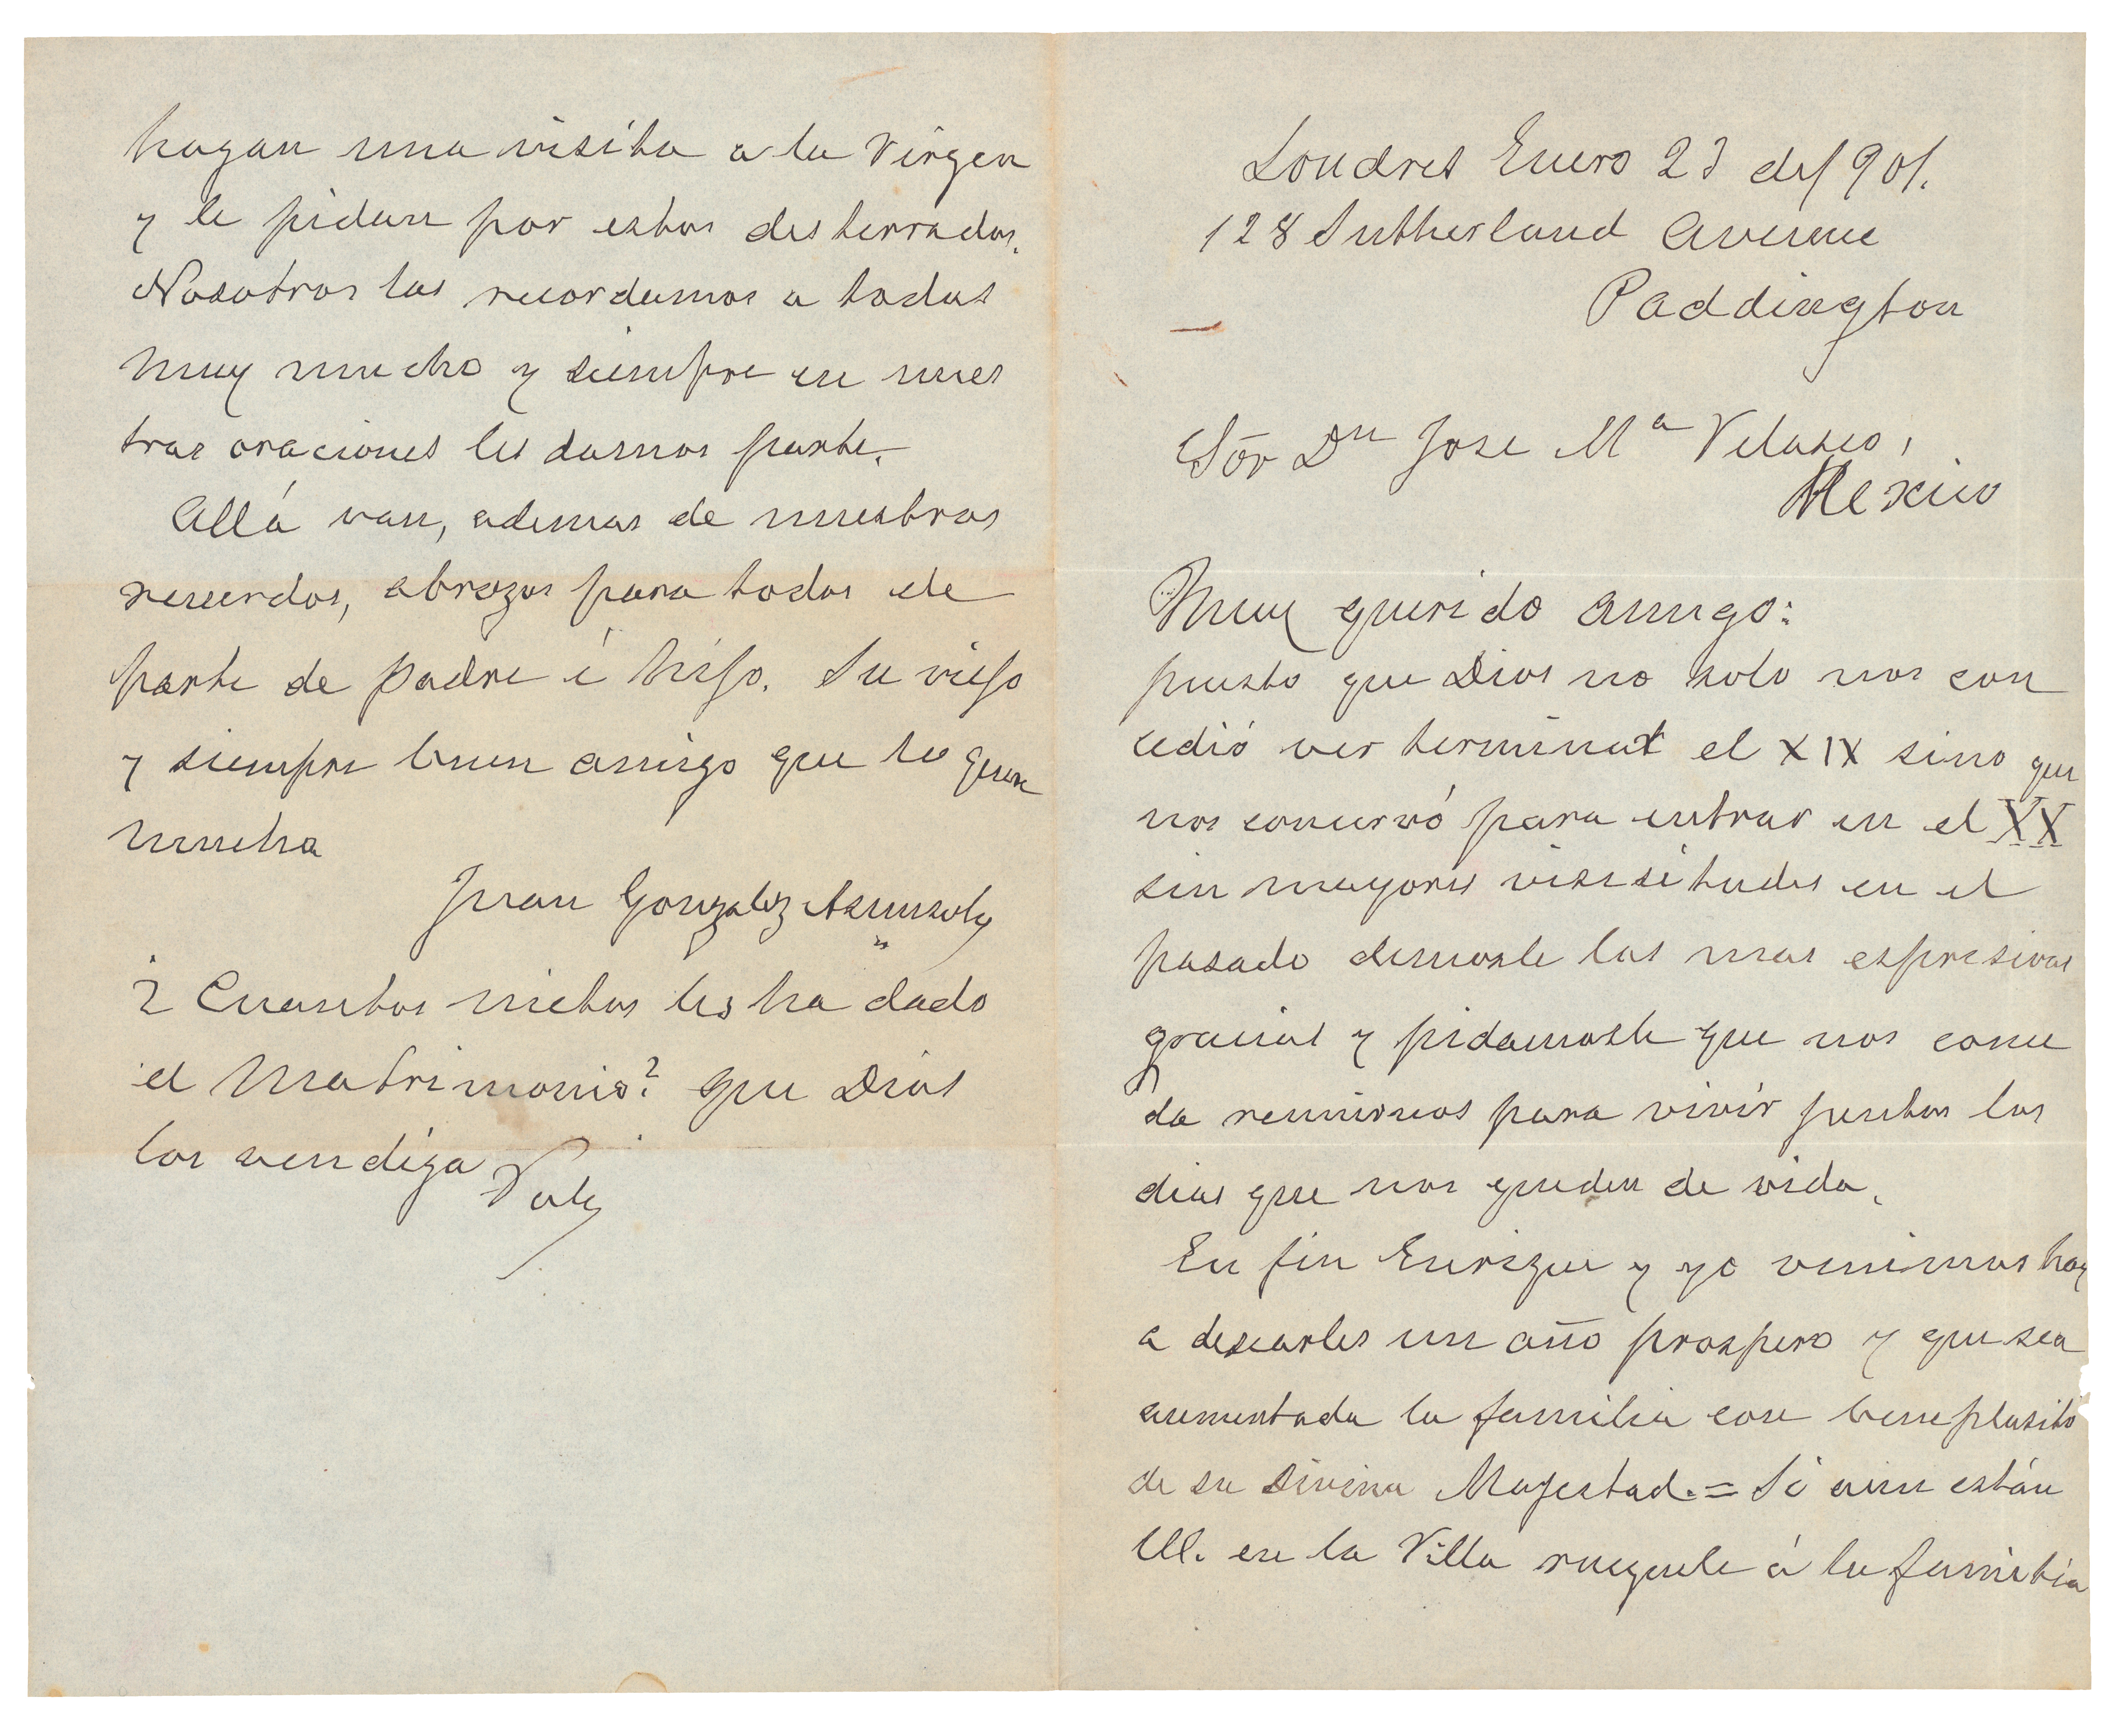 Londres Enero 23 de 1901.
128 Sutherland Avenue
Paddington
Sör Dn Jose Ma Velasco,
Mexico
Muy querido amigo:
puesto que Dios no solo nos con
cedió ver terminar el XIX sino que
nos concervó para entrar en el XX
sin mayores visisitudes en el
pasado demosle las mas espresivas
gracias y pidamosle que nos conce
da reunirnos para vivir juntos los
dias que nos queden de vida.
En fin Enrique y yo venimos hoy
a desearles un año prospero y que sea
aumentada la familia con beneplasito
de su Divina Majestad.= Si aun están
UU. en la Villa rueguele á la familia
hagan una visita a la Virgen
y le pidan por estos desterrados.
Nosotros los recordamos a todos
muy mucho y siempre en nues
tras oraciones les damos parte.
Allá van, ademas de nuestros
recuerdos, abrazos para todos de
parte de padre é hijo. Su viejo
y siempre buen amigo que lo quiere
mucho
Juan Gonzalez Asunsolo
¿Cuantos nietos les ha dado
el Matrimonio? que Dios
los vendiga Vale